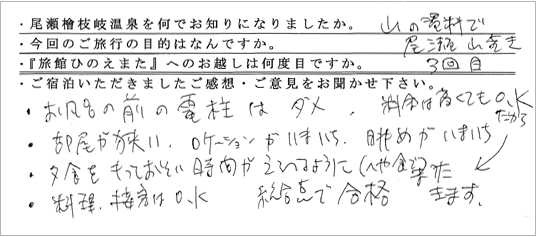 ・尾瀬檜枝岐温泉を何でお知りになりましたか。 山の資料で
・今回のご旅行の目的はなんですか。 尾瀬 山歩き
・『旅館ひのえまた』へのお越しは何度目ですか。 3回目
・ご宿泊いただきましたご感想・ご意見をお聞かせ下さい。
・お風呂の前の電柱はダメ、料金は高くてもO.K だから
・部屋が狭い、ロケーションがいまいち、眺めがいまいち
・夕食をもっとおそい時間がえらべるように(へや食) また
・料理、接客はO.K 総合点で合格 きます。